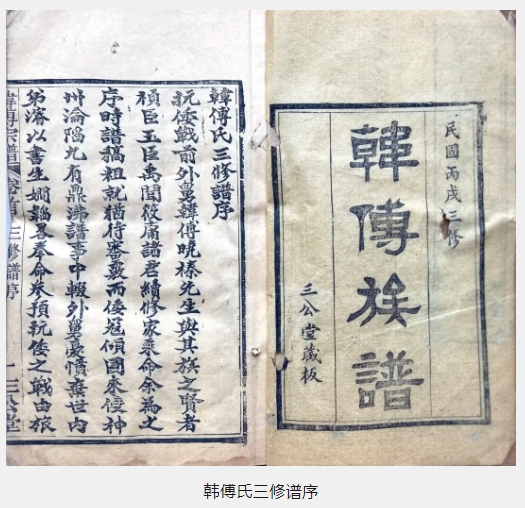 民國丙戌三修
韓傅族譜
三公堂藏板
韓傅氏三修譜序
抗倭戰前外舅韓傅曉榛先生與其族之賢者
禎臣玉臣禹聞筱庸諸君續修家乘命余為之
序時譜稿粗就猶待審覈而倭寇傾國來侵神
州淪陷九有鼎沸譜事中輟外舅憂憤棄世內
弟濬以書生嫻韜畧奉命參預抗倭之戰由旅
三修譜序 一 三公堂
韩傅氏三修谱序